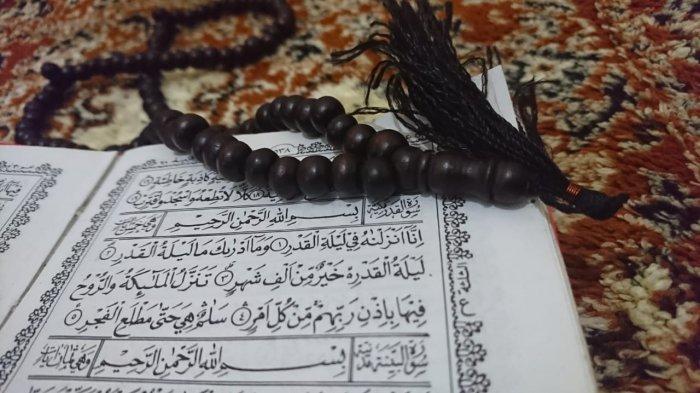 كَاذِبَةٍ خَاطِئَةٍ
كَلَّا لَا تُطِعْهُ وَاسْجُدْ وَاقْتَرِبْ
سُوْرَةُ الْقَدْرِ مَكِّيَّةٌ بِسْمِ اللّٰهِ الرَّحْمٰنِ الرَّحِيْمِ
اِنَّآ اَنْزَلْنٰهُ فِيْ لَيْلَةِ الْقَدْرِ ١ وَمَآ اَدْرٰىكَ مَا لَيْلَةُ الْقَدْرِ ٢
لَيْلَةُ الْقَدْرِ ەۙ خَيْرٌ مِّنْ اَلْفِ شَهْرٍ ٣ تَنَزَّلُ الْمَلٰٓئِكَةُ وَالرُّوْحُ
فِيْهَا بِاِذْنِ رَبِّهِمْ مِّنْ كُلِّ اَمْرٍ ٤ سَلٰمٌ هِيَ حَتّٰى مَطْلَعِ الْفَجْرِ ٥
سُوْرَةُ الْبَيِّنَةِ مَدَنِيَّةٌ بِسْمِ اللّٰهِ الرَّحْمٰنِ الرَّحِيْمِ وَهِيَ ثَمَانُ اٰيَاتٍ